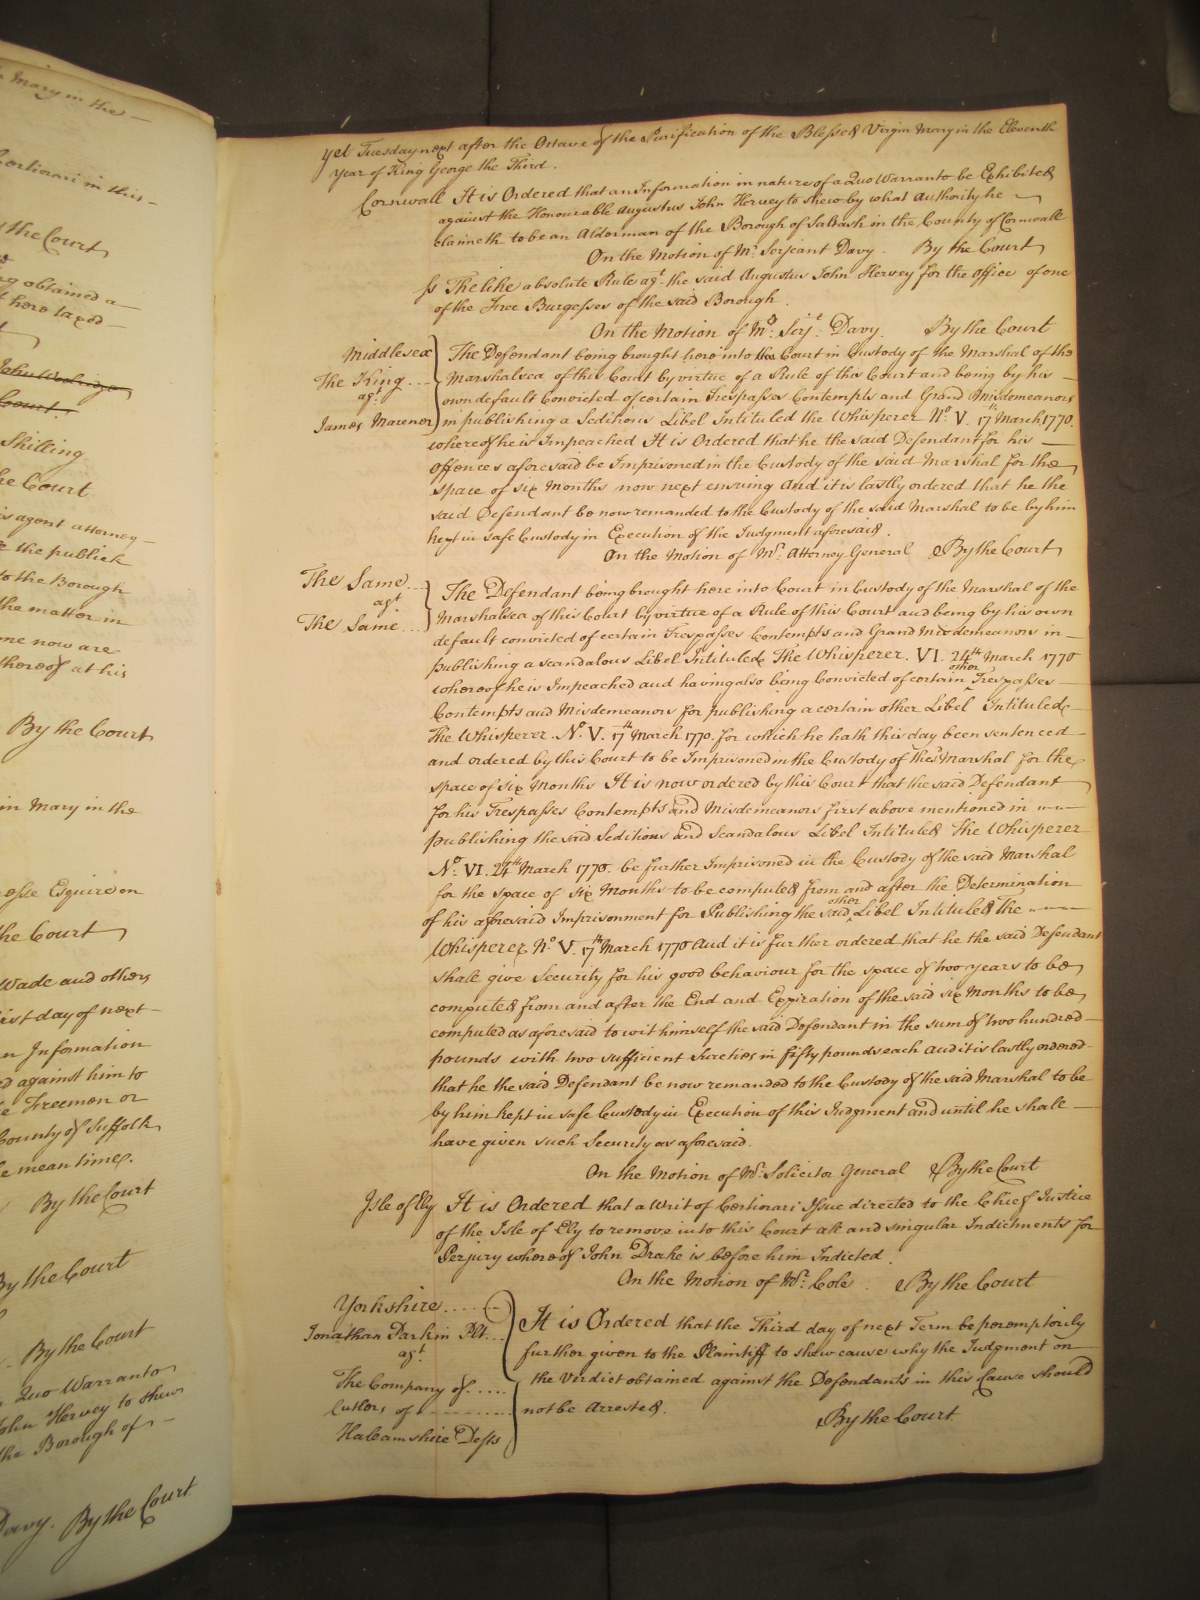 e Mary in the
Certiorari in this
y the Court
ng obtained a
t here taxed
John Woodridge
Court
Shilling
he Court
is agent attorney
the publick
to the Borough
the matter in
me now are
thereof at his
By the Court
in Mary in the
esse Esquire on
the Court
Wade and others
first day of next
an Information
ed against him to
e Freemen or
County of Suffolk
e mean time.
By the Court
By the Court
By the Court
Quo Warranto
John Hervey to shew
the Borough of
Davy. By the Court
yet Tuesday next after the Octave of the Purification of the Blessed Virgin Mary in the Eleventh
Year of King George the Third.
Cornwall It is Ordered that an Information in nature of a Quo Warranto be Exhibited
against the Honourable Augustus John Hervey to shew by what Authority he
claimeth to be an Alderman of the Borough of Saltash in the County of Cornwall
On the Motion of Mr. Serjeant Davy. By the Court
ss The like absolute Rule agt. the said Augustus John Hervey for the office of one
of the Free Burgesses of the said Borough.
On the Motion of Mr. Serjt. Davy. By the Court
Middlesex
The King
agt.
James Marener
The Defendant being brought here into the Court in Custody of the Marshal of the
Marshalsea of this Court by virtue of a Rule of this Court and being by his
own default Convicted of certain Trespasses Contempts and Grand Misdemeanors
in publishing a Seditious Libel Intituled the Whisperer No. V. 17th March 1770.
whereof he is Impeached It is Ordered that he the said Defendant for his
offences aforesaid be Imprisoned in the Custody of the said Marshal for the
space of six Months now next ensuing And it is lastly ordered that he the
said Defendant be now remanded to the Custody of the said Marshal to be by him
kept in safe Custody in Execution of the Judgment aforesaid.
On the Motion of Mr. Attorney General By the Court
The Same
agt
The Same
The Defendant being brought here into Court in Custody of the Marshal of the
Marshalsea of this Court by virtue of a Rule of this Court and being by his own
default convicted of certain Trespasses Contempts and Grand Misdemeanors in
publishing a scandalous Libel Intituled The Whisperer. VI. 24th March 1770
whereof he is Impeached and having also being Convicted of certain other Trespasses
Contempts and Misdemeanors for publishing a certain other Libel Intituled
The Whisperer No. V. 17th March 1770. for which he hath this day been sentenced
and ordered by this Court to be Imprisoned in the Custody of the sd Marshal for the
space of six Months It is now ordered by this Court that the said Defendant
for his Trespasses Contempts and Misdemeanors first above mentioned in
publishing the said Seditious and Scandalous Libel Intituled The Whisperer
No. VI. 24th March 1770. be further Imprisoned in the Custody of the said Marshal
for the space of six Months to be computed from and after the Determination
of his aforesaid Imprisonment for Publishing the said other Libel Intituled The
Whisperer No. V. 17th March 1770 And it is further ordered that he the said Defendant
shall give Security for his good behaviour for the space of two years to be
computed from and after the End and Expiration of the said six Months to be
computed as aforesaid to wit himself the said Defendant in the sum of two hundred
pounds with two sufficient Sureties in fifty pounds each and it is lastly ordered
that he the said Defendant be now remanded to the Custody of the said Marshal to be
by him kept in safe Custody in Execution of this Judgment and until he shall
have given such Security as aforesaid.
On the Motion of Mr. Solicitor General By the Court
Isle of Ely It is Ordered that a Writ of Certiorari Issue directed to the Chief Justice
of the Isle of Ely to remove into this Court all and singular Indictments for
Perjury whereof John Drake is before him Indicted.
On the Motion of Mr. Cole. By the Court
Yorkshire
Jonathan Parkin Plt.
agt.
The Company of
Cutlers of
Halamshire Defts
It is Ordered that the Third day of next Term be peremptorily
further given to the Plaintiff to shew cause why the Judgment on
the Verdict obtained against the Defendants in this Cause should
not be Arrested.
By the Court